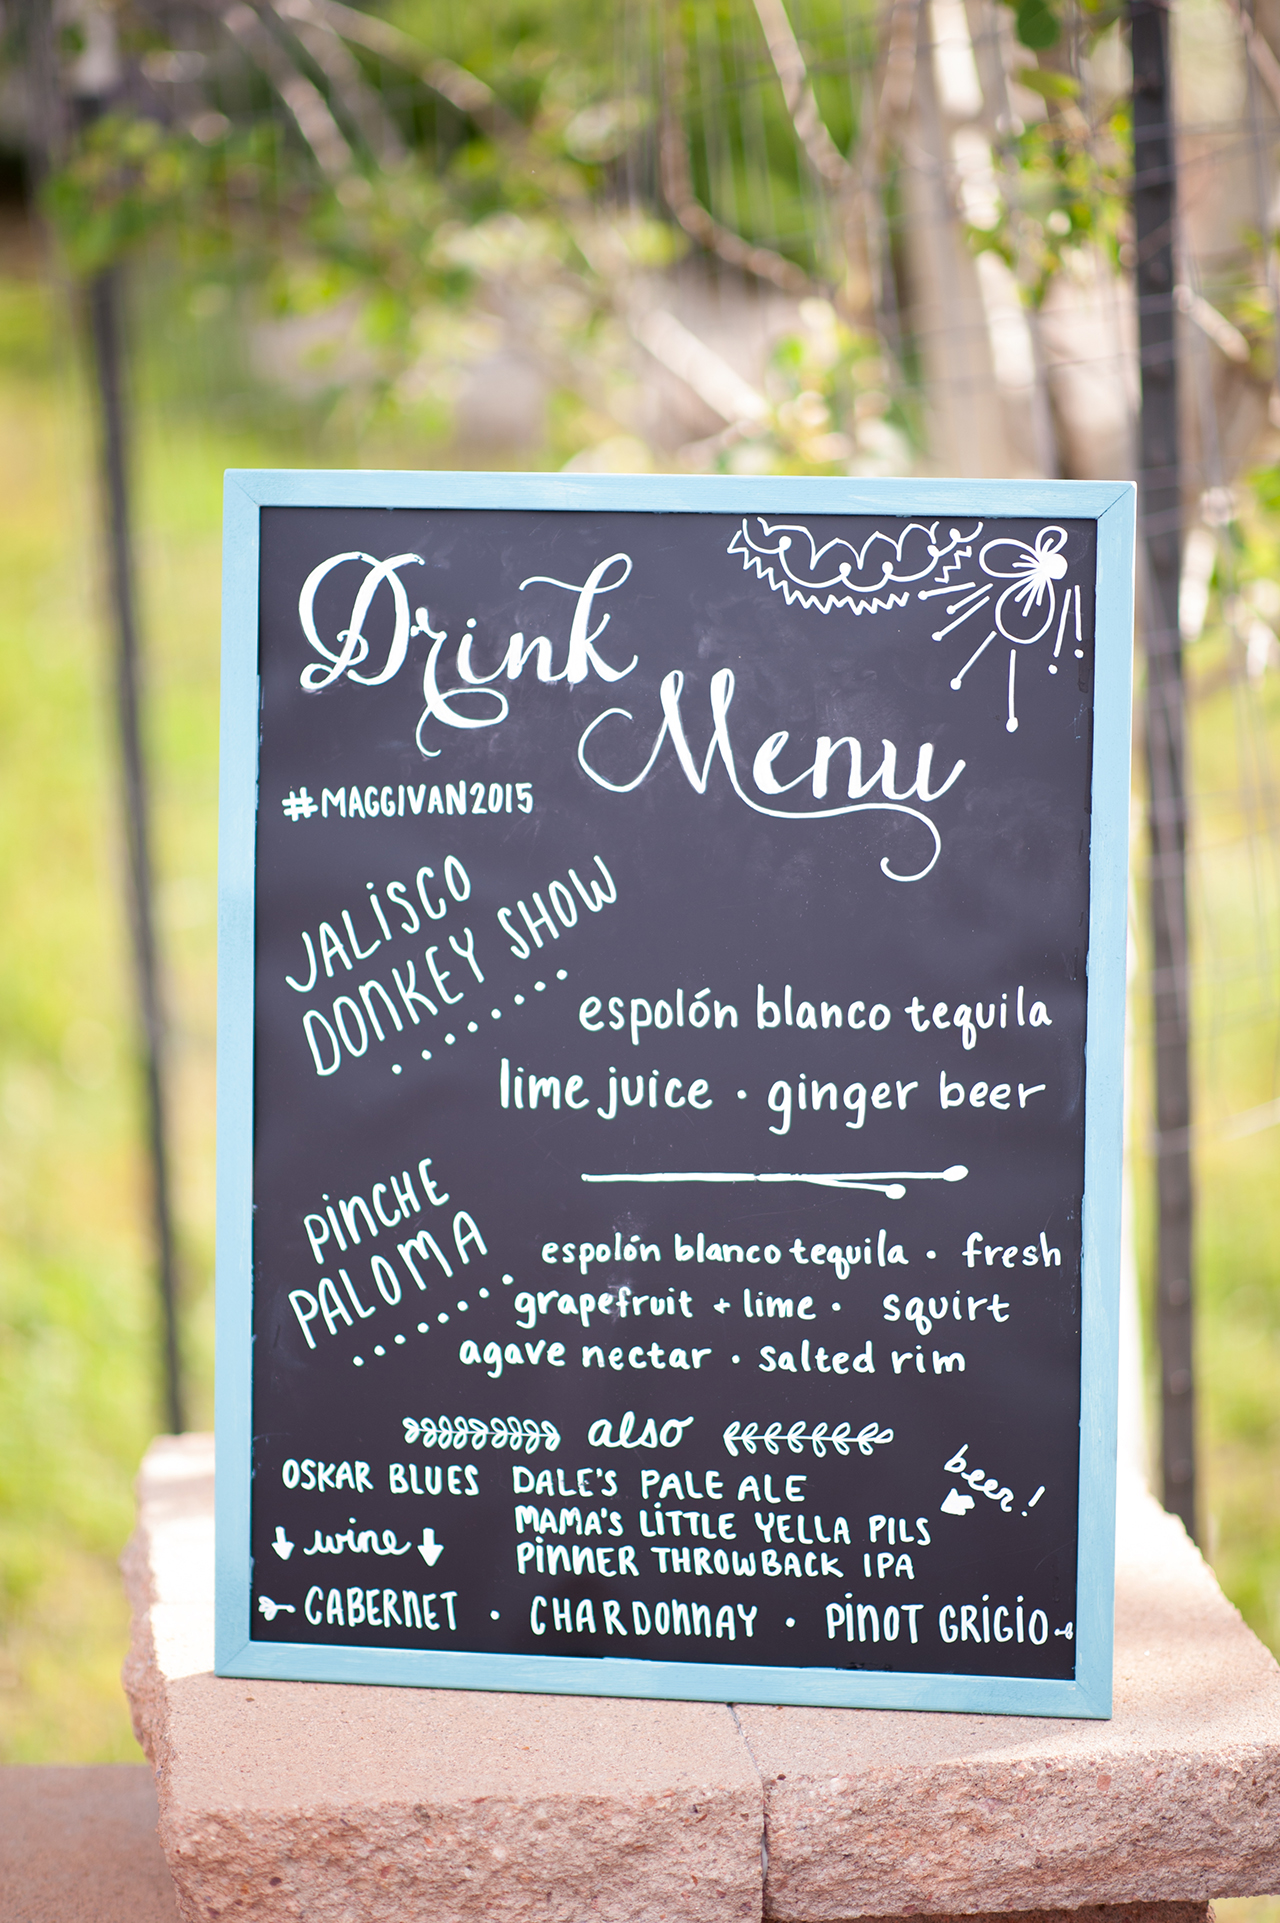 Drink
Menu
#MAGGIVAN2015
JALISCO
DONKEY SHOW
espolón blanco tequila
lime juice · ginger beer
PINCHE
PALOMA
espolón blanco tequila · fresh
grapefruit + lime · squirt
agave nectar · salted rim
also
beer!
OSKAR BLUES DALE'S PALE ALE
MAMA'S LITTLE YELLA PILS
PINNER THROWBACK IPA
wine
CABERNET · CHARDONNAY · PINOT GRIGIO